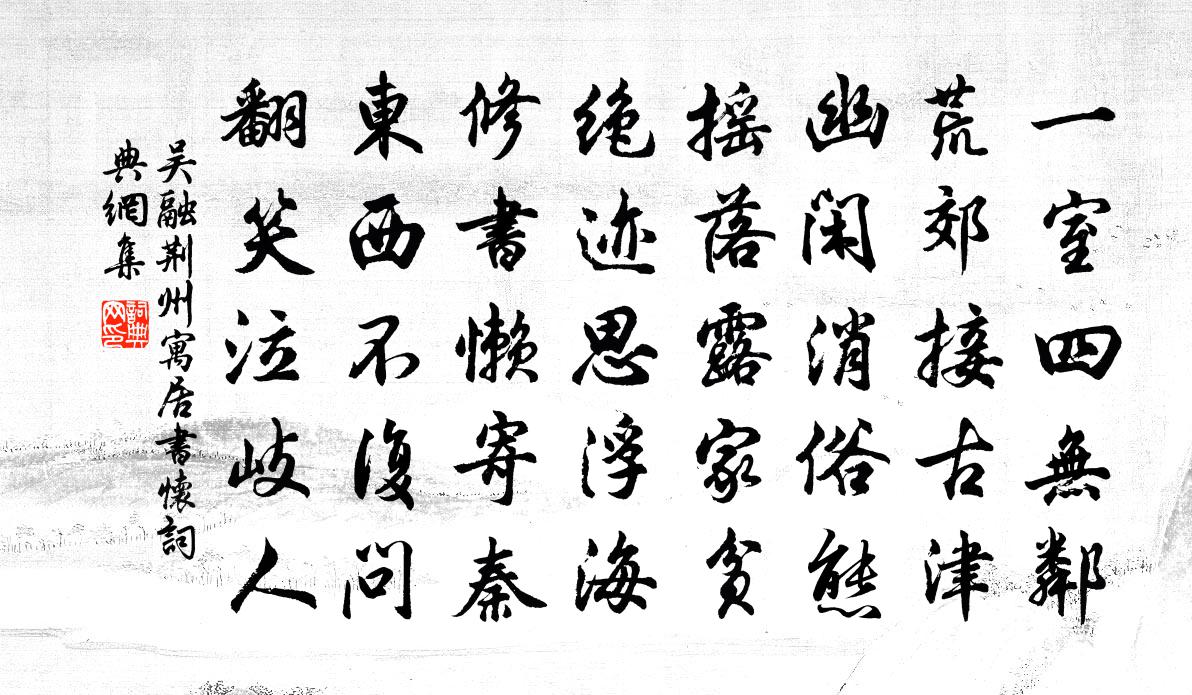 一室四無鄰
荒郊接古津
幽閑消俗態
摇落露家貧
绝迹思浮海
修書懒寄秦
東西不復問
翻笑泣岐人
吴融荆州寓居書懷詞
典網集
詞典
网印